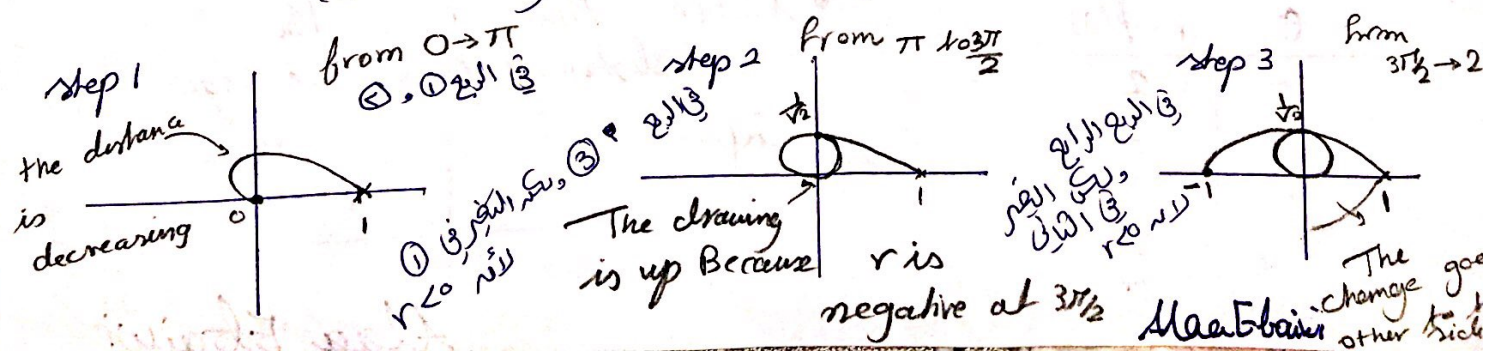 step 1
from 0→π
في الربع ①, ②
the distance
is
decreasing
0
1
step 2
From π to 3π/2
في الربع ③ ولكن التغير في ①
لأنه r<0
1/√2
1
The drawing
is up Because r is
negative at 3π/2
step 3
From
3π/2→2
في الربع الرابع
ولكن التغير
في الثاني
لأنه r<0
1/√2
-1
1
The
change goe
other side